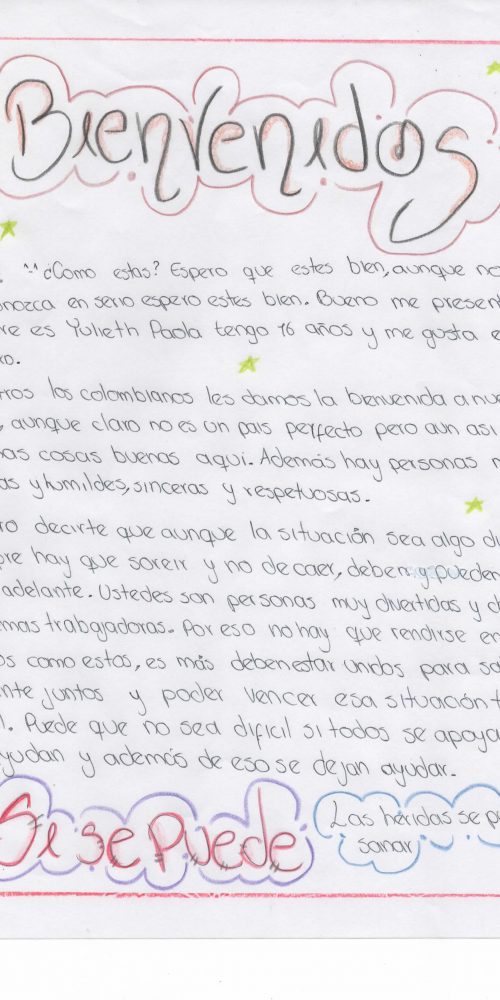 Bienvenidos
¿Como estas? Espero que estes bien, aunque no
onozca en serio espero estes bien. Bueno me presen
re es Yulieth Paola tengo 16 años y me gusta e
ro.
tros los colombianos les damos la bienvenida a nue
, aunque claro no es un pais perfecto pero aun asi
has cosas buenas aqui. Además hay personas m
as y humildes, sinceras y respetuosas.
ro decirte que aunque la situación sea algo di
pre hay que soreir y no decaer, deben y pueden
adelante. Ustedes son personas muy divertidas y
mas trabajadoras. Por eso no hay que rendirse en
os como estos, es más deben estar unidos para sa
nte juntos y poder vencer esa situación t
l. Puede que no sea dificil si todos se apoya
yudan y además de eso se dejan ayudar.
Si se Puede
Las héridas se p
sanar